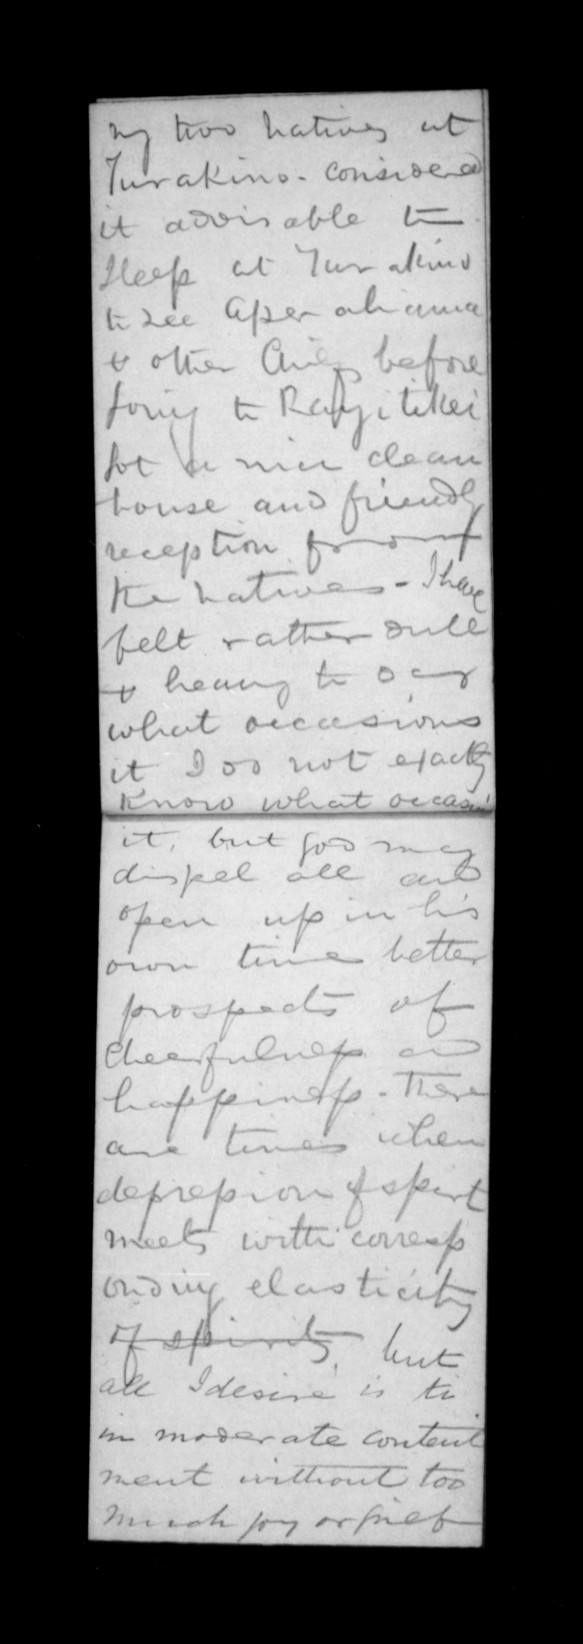 my two natives at
Turakino. considered
it advisable to
sleep at Turakino
to see Aperahama
& other before
going to Rangitikei
Got a nice clean
house and friendly
reception from
the natives - I have
felt rather dull
& heavy to day
what occasions
it I do not exactly
know what occasions
it. but God may
dispel all and
open up in his
own time better
prospects of
cheerfulness and
happiness. There
are times when
depression of spirit
meets with corresp
onding elasticity
of spirits, but
all I desire is to
in moderate content
ment without too
much joy or grief